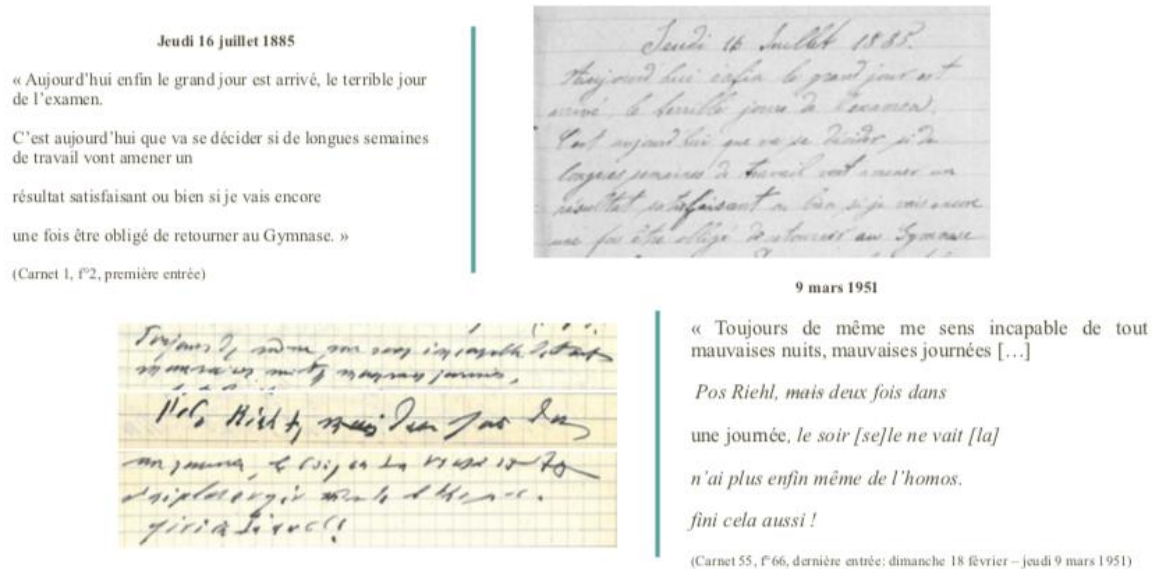 Jeudi 16 juillet 1885
« Aujourd'hui enfin le grand jour est arrivé, le terrible jour
de l'examen.
C'est aujourd'hui que va se décider si de longues semaines
de travail vont amener un
résultat satisfaisant ou bien si je vais encore
une fois être obligé de retourner au Gymnase. »
(Carnet 1, f°2, première entrée)
Jeudi 16 Juillet 1885.
Aujourd'hui enfin le grand jour est
arrivé, le terrible jour de l'examen.
C'est aujourd'hui que va se décider si de
longues semaines de travail vont amener un
résultat satisfaisant ou bien si je vais encore
une fois être obligé de retourner au Gymnase
Toujours de même me sens incapable de tout
mauvaises nuits mauvaises journées.
Riehl, mais deux fois dans
9 mars 1951
« Toujours de même me sens incapable de tout
mauvaises nuits, mauvaises journées […]
Pos Riehl, mais deux fois dans
une journée, le soir [se]le ne vait [la]
n'ai plus enfin même de l'homos.
fini cela aussi !
(Carnet 55, f°66, dernière entrée: dimanche 18 février – jeudi 9 mars 1951)